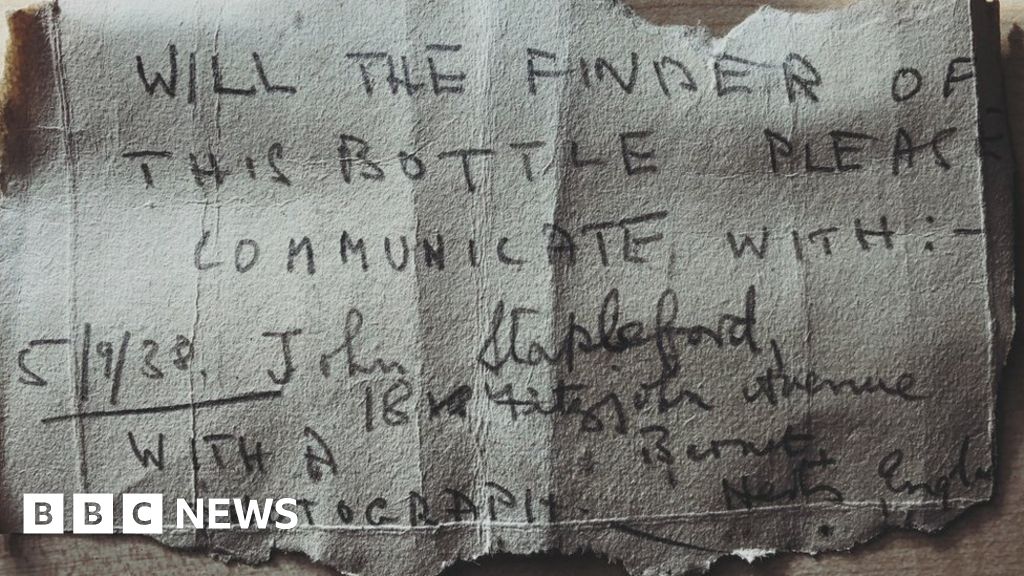 WILL THE FINDER OF
THIS BOTTLE PLEASE
COMMUNICATE WITH:-
5/9/38. John Stapleford,
18 Fitzjohn Avenue
WITH A Barnet,
Herts, Engla
TOGRAPH.
BBC NEWS